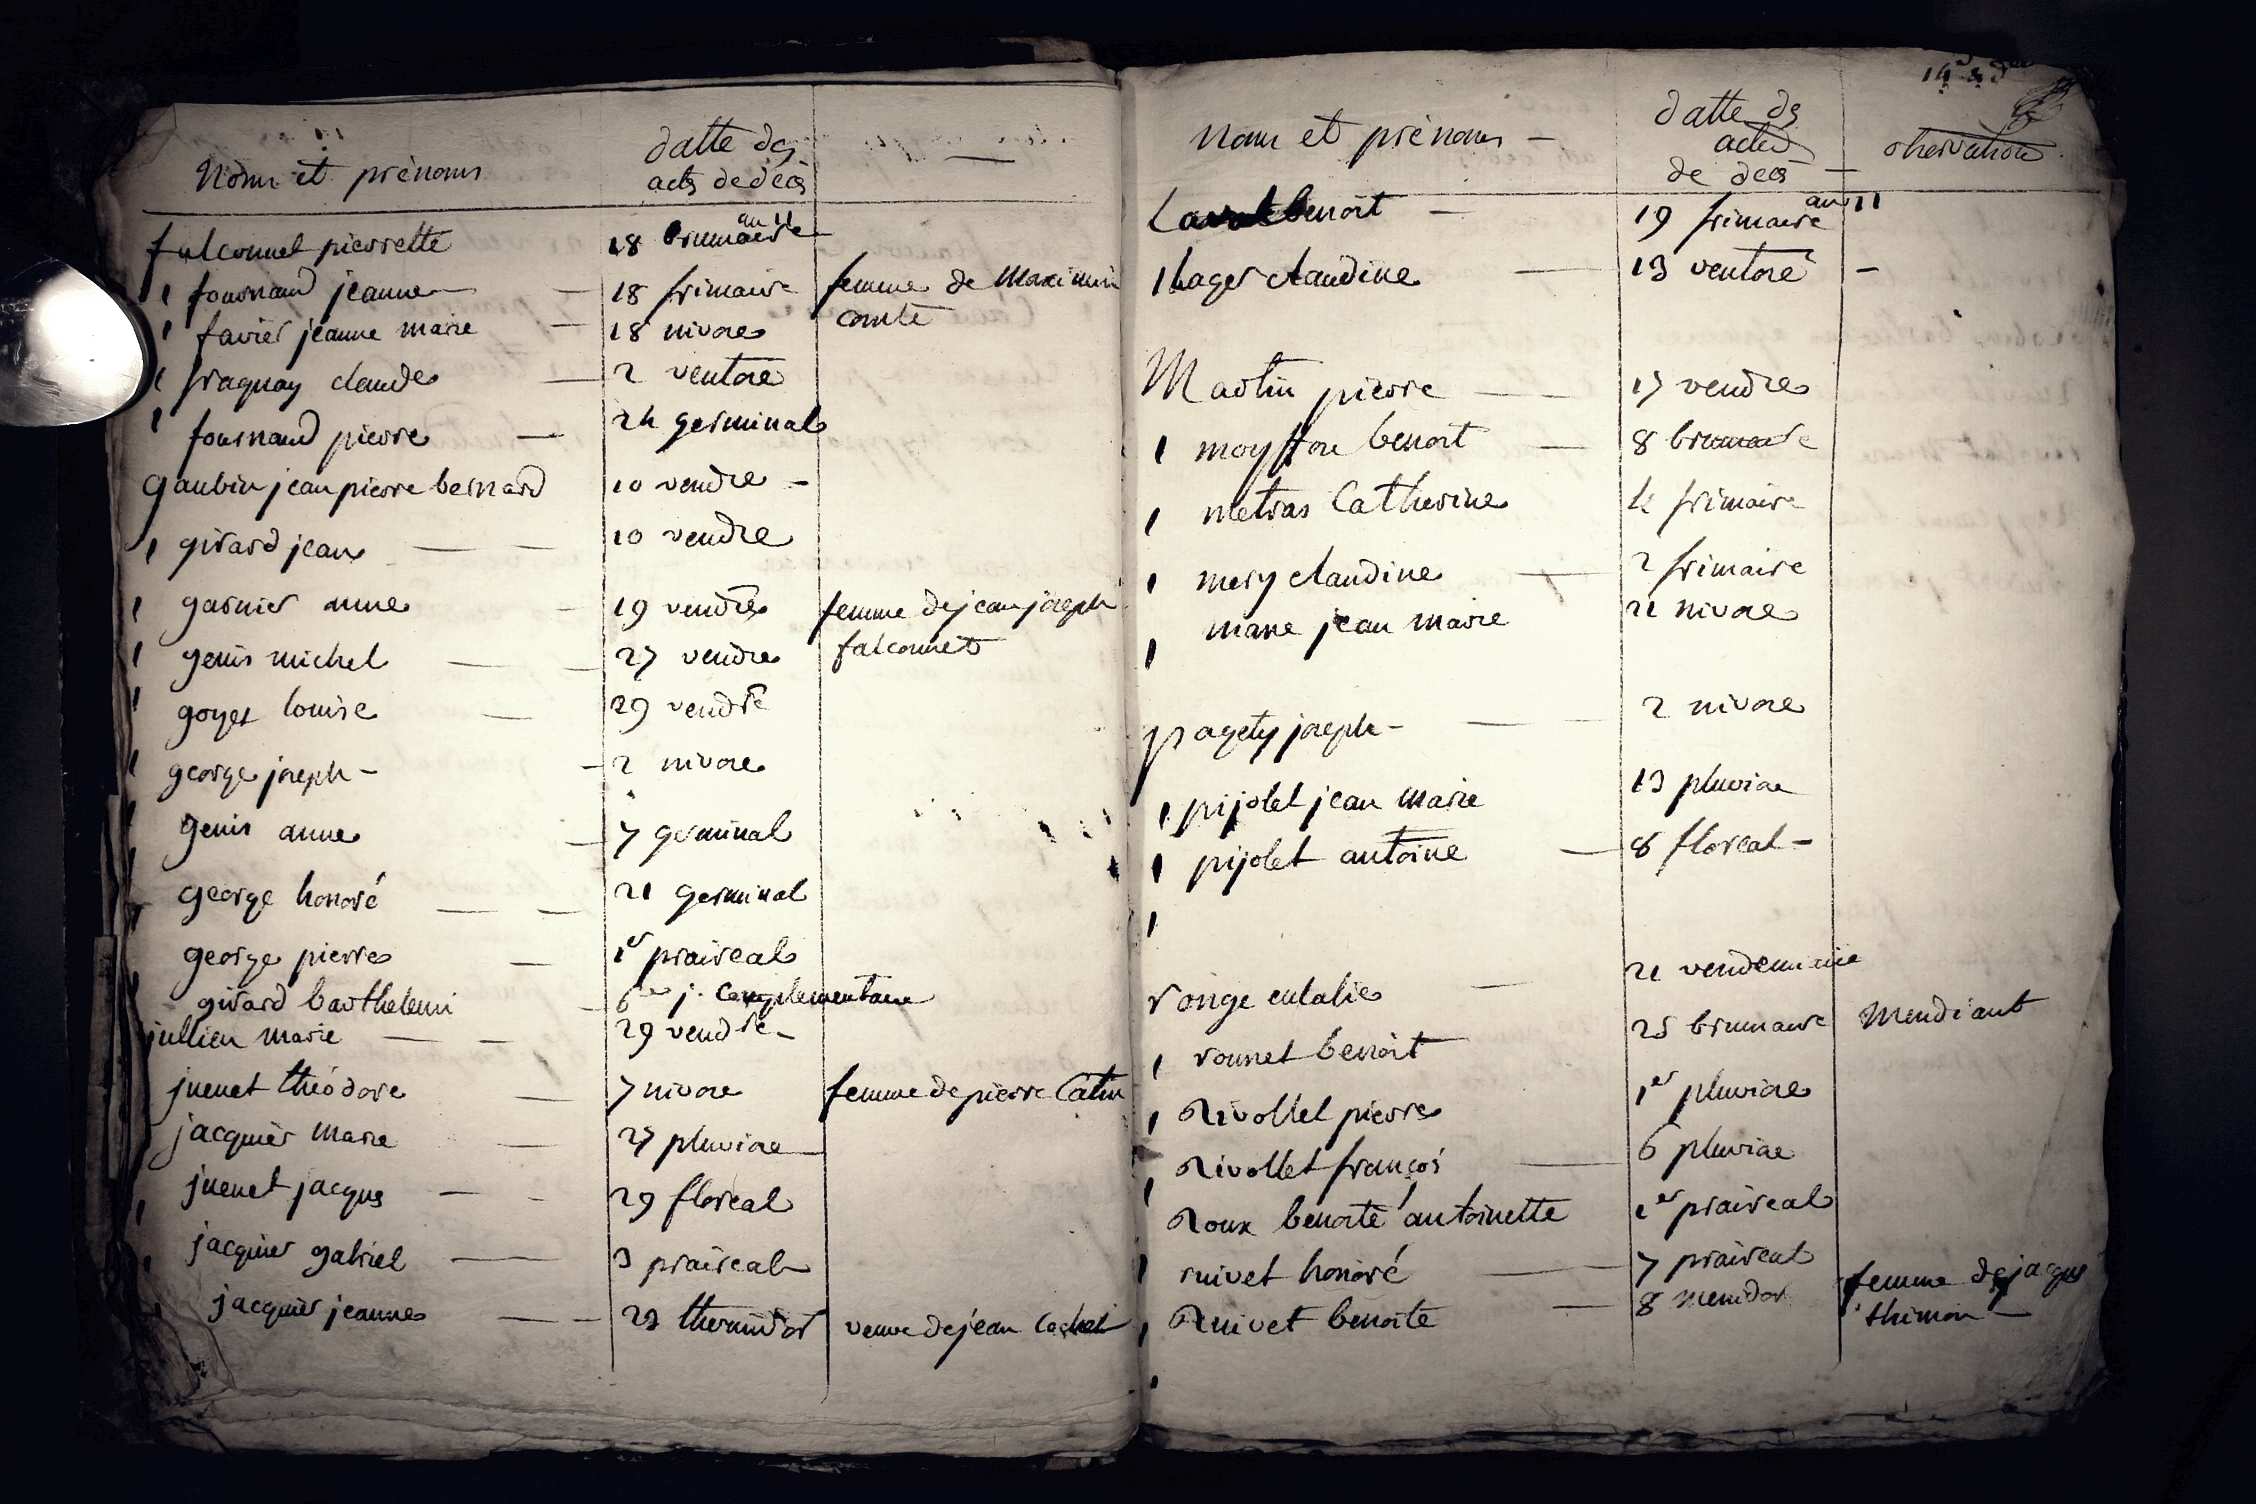 Noms et prénoms
datte des
acts de décès
fulconnet pierrette 18 brumaire an 11
fournand jeanne 18 frimaire femme de Maximin
favier jeanne marie 18 nivose comte
fraguay claude 2 ventose
fournand pierre 24 germinal
gaubin jean pierre bernard 10 vendre
girard jean 10 vendre
garnier anne 19 vendre femme de jean joseph
genis michel 27 vendre falconnet
goyet louise 29 vendre
george joseph 2 nivose
genis anne 7 germinal
george honoré 21 germinal
george pierre 1er praireal
girard barthelemi 6me j. complementaire
jullien marie 29 vendre
juenet théodore 7 nivose femme de pierre Catin
jacquier marie 27 pluviose
juenet jacques 29 floreal
jacquier gabriel 3 praireal
jacquier jeanne 29 thermidor veuve de jean
Noms et prénoms
datte des
actes
de décès
observations
benoit 19 frimaire an 11
lhager claudine 13 ventose
Martin pierre 17 vendre
moyston benoit 8 brumaire
metras Catherine 4 frimaire
mery claudine 2 frimaire
mane jean marie 21 nivose
pagety joseph 2 nivose
pijolet jean marie 13 pluviose
pijolet antoine 8 floreal
ronge eulalie 21 vendemiaire
ronnet benoit 25 brumaire Mendiant
Rivollet pierre 1er pluviose
Rivollet françois 6 pluviose
Roux benoite antoinette 1er praireal
ruivet honoré 7 praireal femme de jacques
Ruivet benoite 8 messidor thimon